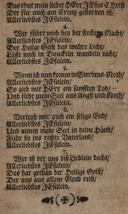 Das thut mein lieber HErr JEsus Christ
Der für mich am Creutz gestorben ist/
Allerliebstes JEsulein/
4.
Wer stärckt mich in der
Allerliebstes JEsulein/
Der Heilge Geist das wahre Licht/
Läst mich in Dunckeln wandeln nicht/
Allerliebstes JEsulein/
5.
Wenn ich nun komm in Sterbens-Noth/
Allerliebstes JEsulein/
So gib mir HErr ein sanfften Tod/
Und führ mein Seel aus Angst und Noth/
Allerliebstes JEsulein/
6.
Verleih mir auch ein selig End/
Allerliebstes JEsulein/
Und nimm mein Seel in deine Händ/
Führ sie ins rechte Vaterland/
Allerliebstes JEsulein/
7.
Wer ist der uns dis Liedlein dacht/
Allerliebstes JEsulein/
Das hat gethan der Heilge Geist/
Der uns aus allem Elend reist/
Allerliebstes JEsulein/